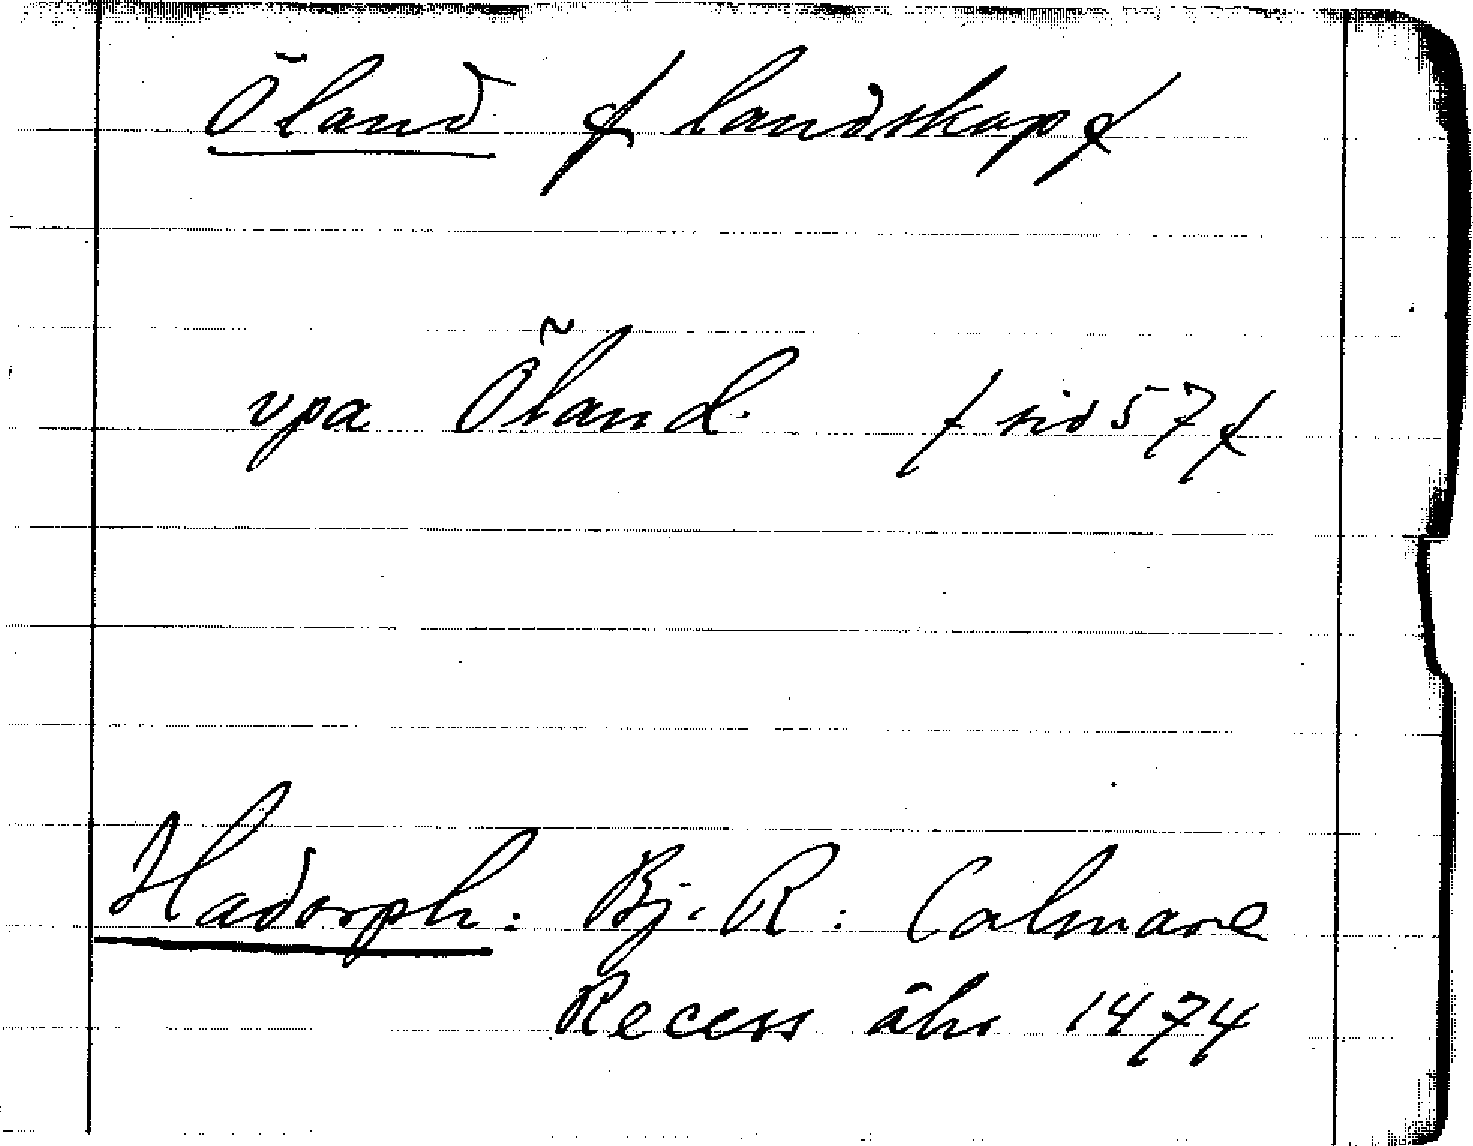 Öland / landskap /
vpa Öland. / sid 57 /
Hadorph: Bj. R: Calmare
Recess åhr 1474